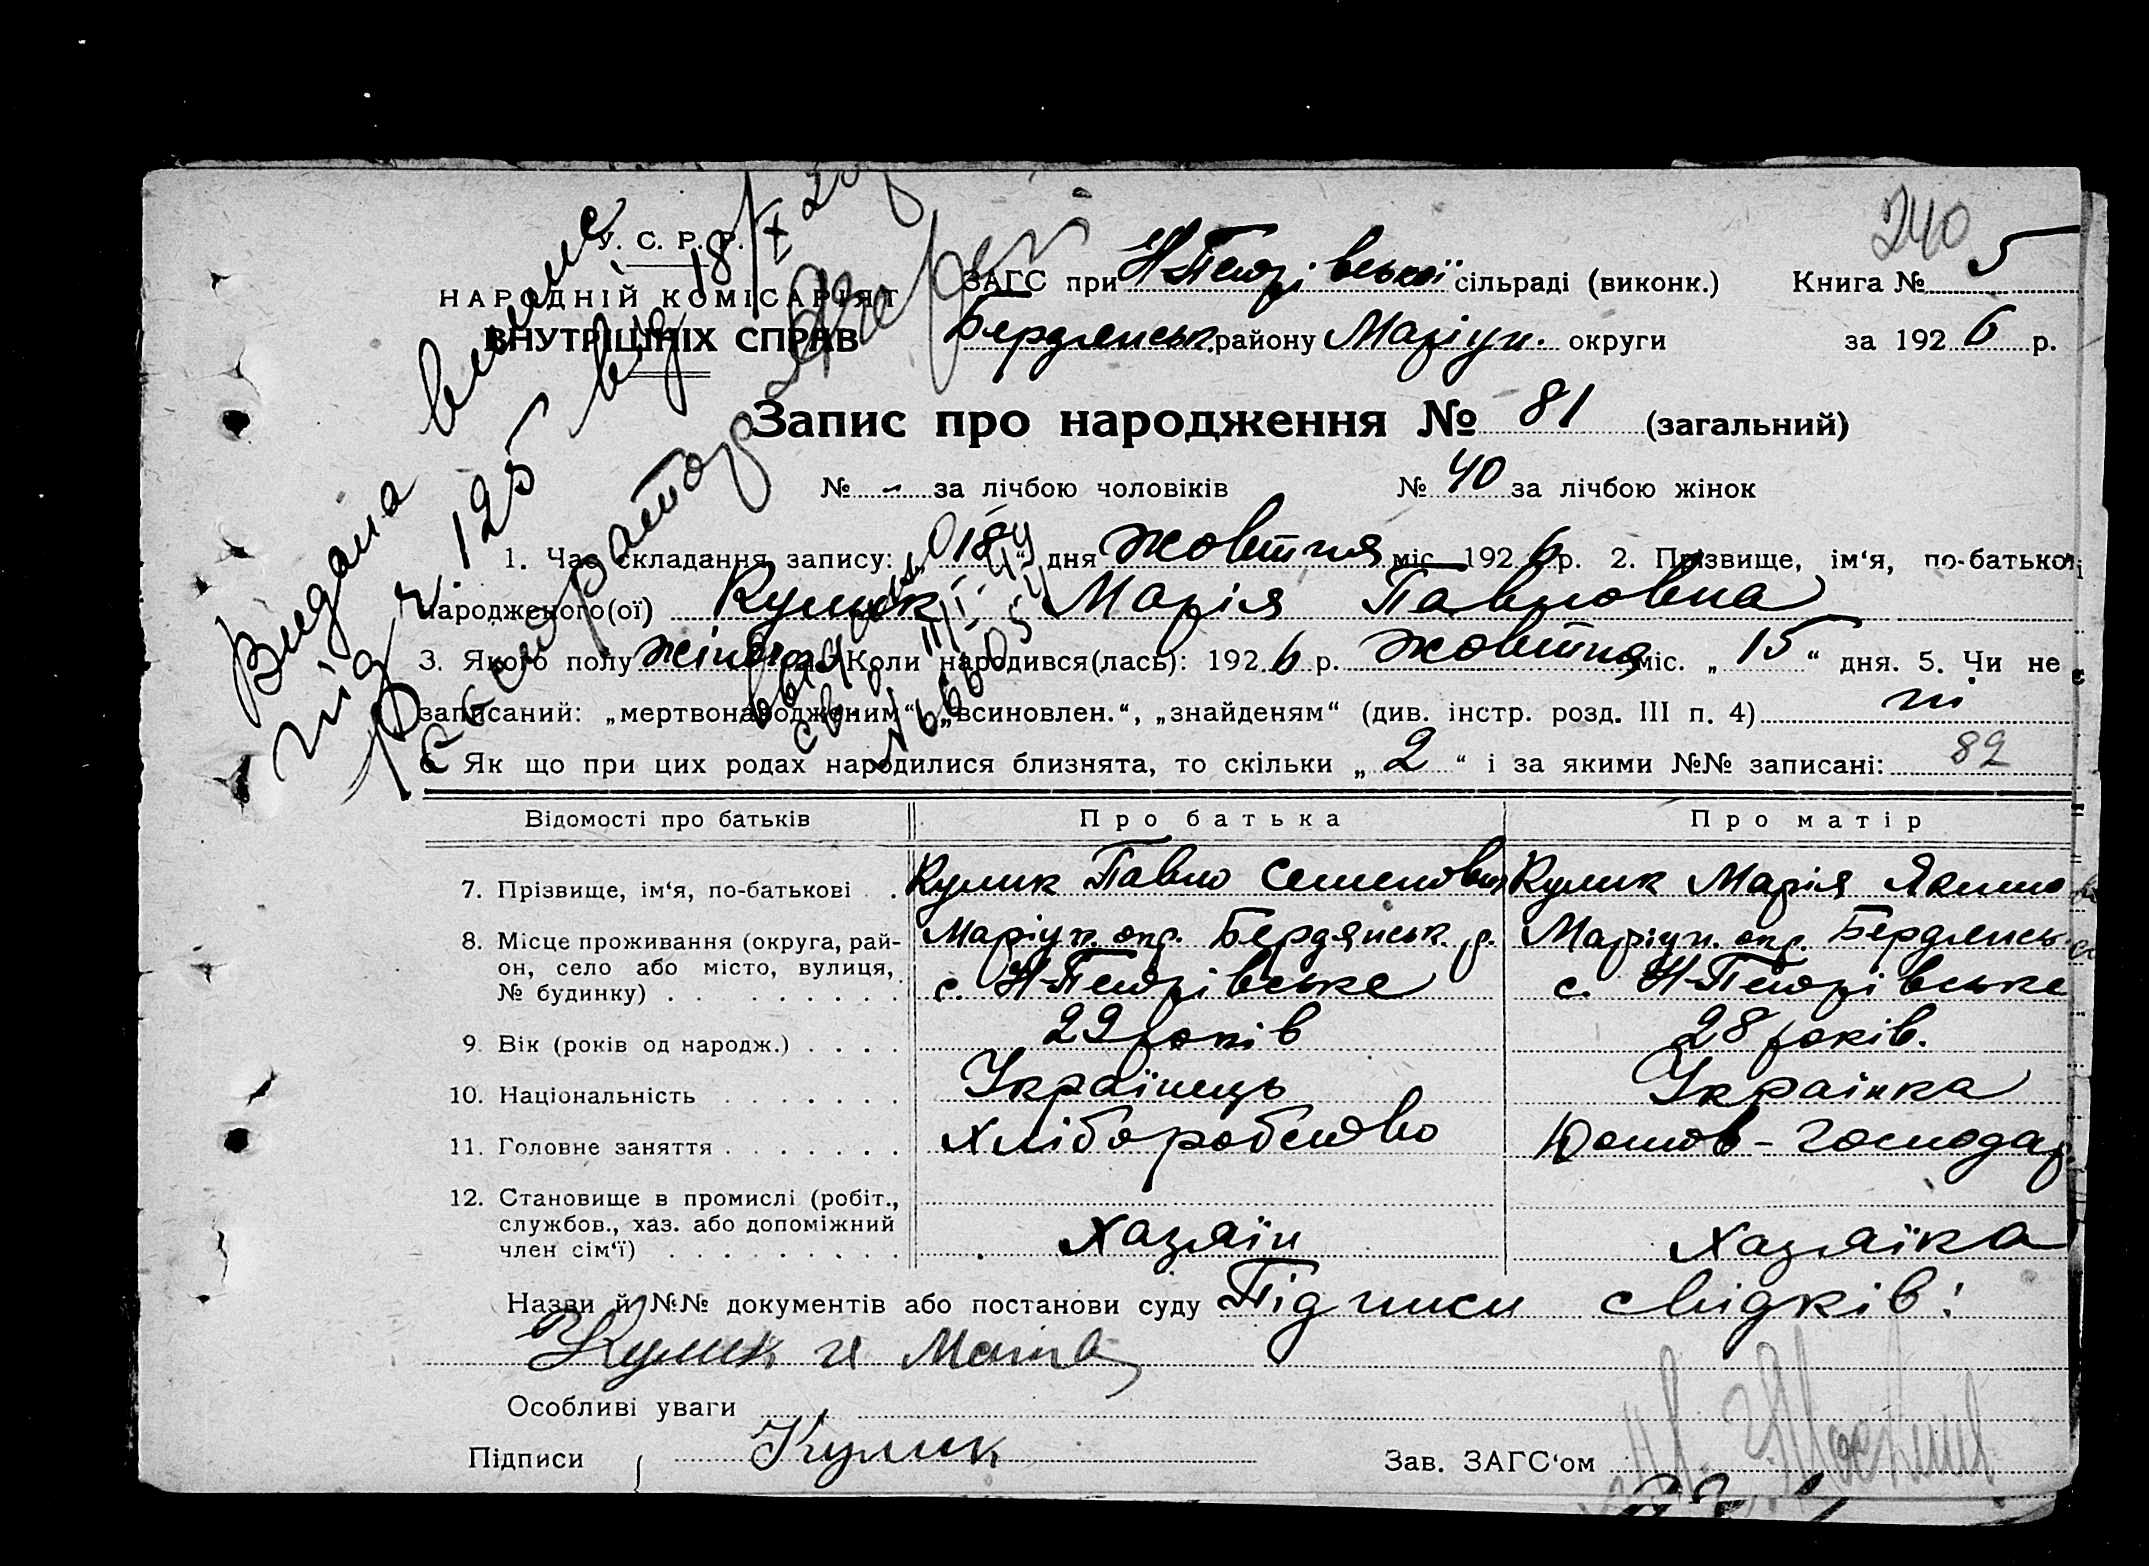 240
У. С. Р. Р.
НАРОДНІЙ КОМІСАРІЯТ
ВНУТРІШНІХ СПРАВ
ЗАГС при Н-Петрівської сільраді (виконк.) Книга № 5
Бердянськ. району Маріуп. округи за 1926 р.
Видана виписк
під ч. 125 від 18/X 26
Запис про народження № 81 (загальний)
№ - за лічбою чоловіків № 40 за лічбою жінок
1. Час складання запису: „18“ дня жовтня міс. 1926 р. 2. Прізвище, ім‘я, по-батькові
народженого(ої) Кулик Марія Павловна
3. Якого полу жіноча 4. Коли народився(лась): 1926 р. жовтня міс. „15“ дня. 5. Чи не є
записаний: „мертвонародженим“, „всиновлен.“, „знайденям“ (див. інстр. розд. III п. 4) ні
6. Як що при цих родах народилися близнята, то скільки „2“ і за якими №№ записані: 82
Відомості про батьків Про батька Про матір
7. Прізвище, ім‘я, по-батькові . . Кулик Павло Семенович Кулик Марія Якимов
8. Місце проживання (округа, рай- Маріуп. окр. Бердянськ. р. Маріуп. окр. Бердянськ.
он, село або місто, вулиця, с. Н-Петрівське с. Н-Петрівське
№ будинку) . . . . . . . .
9. Вік (років од народж.) . . . . 29 років 28 років.
10. Національність . . . . . . . Українець Українка
11. Головне заняття . . . . . . . Хліборобство Домов-господар.
12. Становище в промислі (робіт.,
службов., хаз. або допоміжний
член сім‘ї) . . . . . . . . . Хазяїн Хазяїка
Назви й №№ документів або постанови суду Підписи свідків:
Кулик и
Особливі уваги
Підписи { Кулик Зав. ЗАГС‘ом